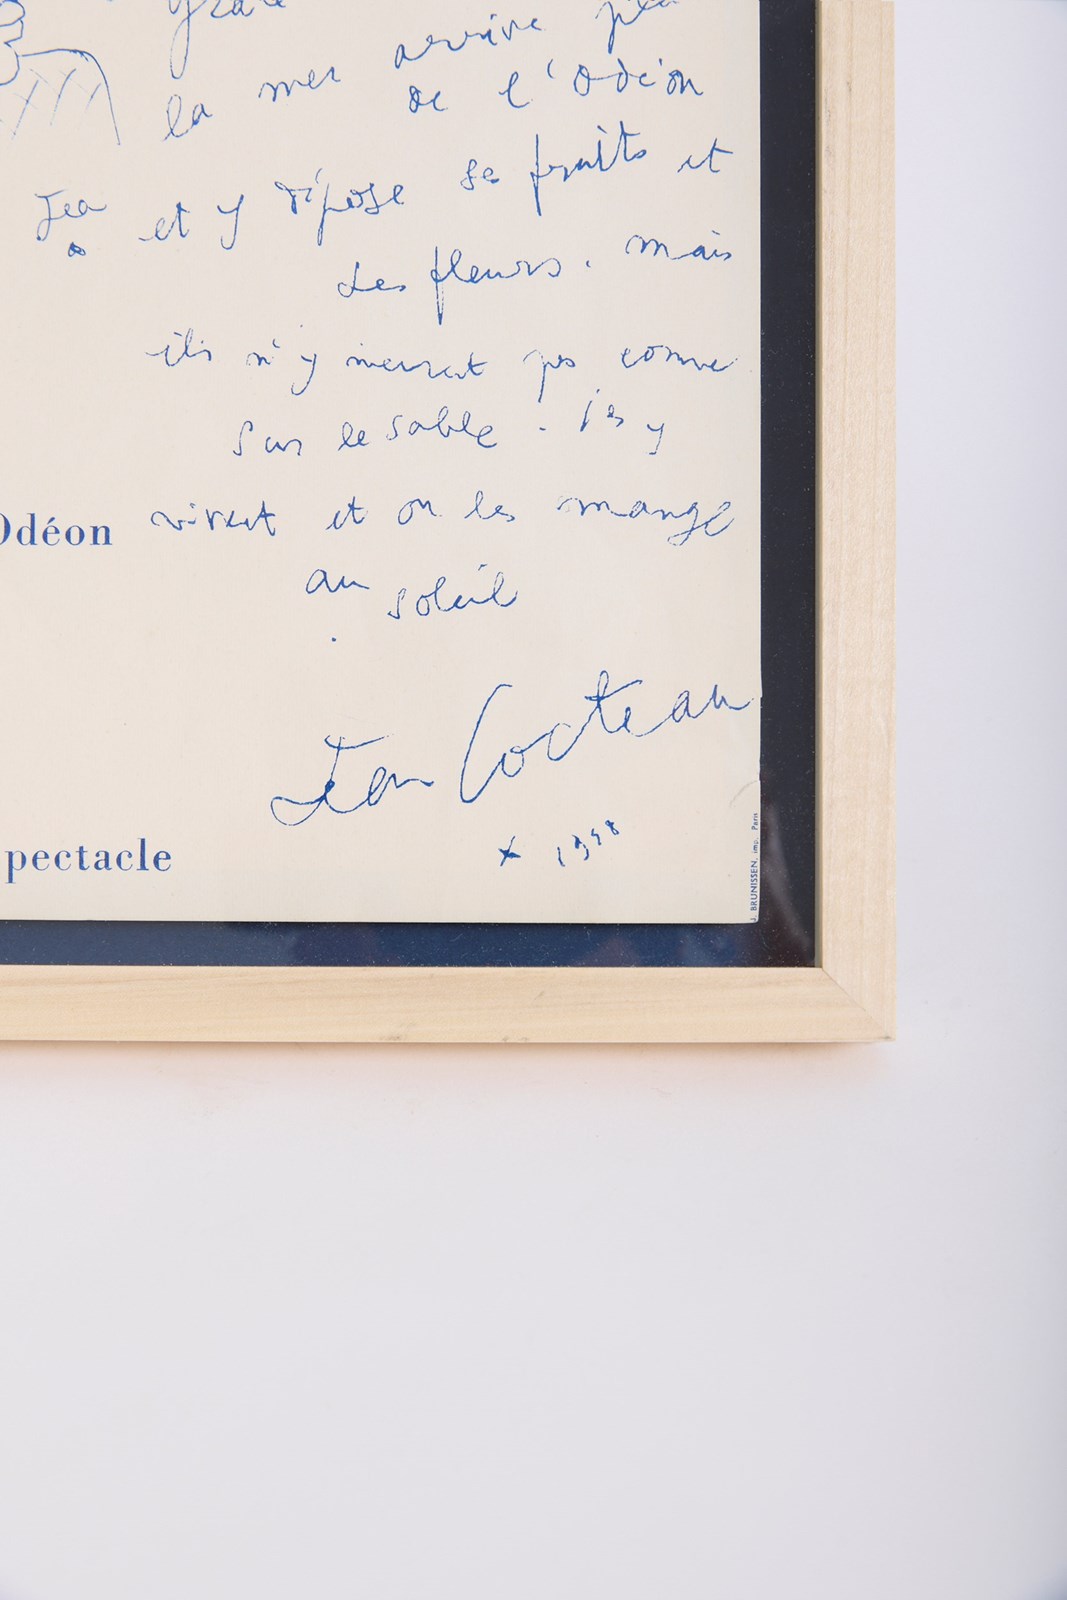 la mer arrive
de l'Odéon
Jean et y dépose se fruits et
des fleurs. mais
ils n'y meurent pas comme
sur le sable. ils y
Odéon vivent et on les mange
au soleil
Jean Cocteau
1958
pectacle
J. BRUNISSEN, imp. Paris